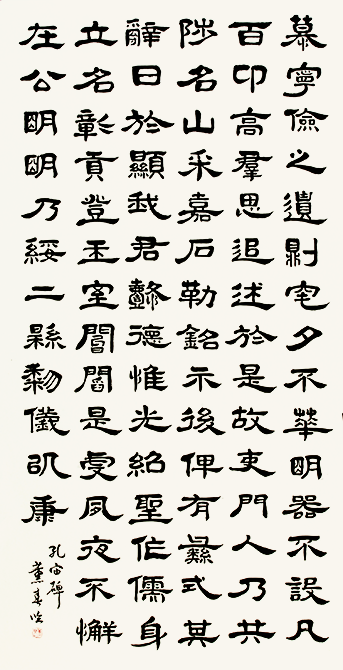 慕寧儉之遺則窀夕不華明器不設凡
百卬高羣思追述於是故吏門人乃共
陟名山采嘉石勒銘示後俾有彝式其
辭曰於顯我君懿德惟光紹聖作儒身
立名彰貢登王室閽閣是虔夙夜不懈
在公明明乃綏二縣黎儀以康
孔宙碑